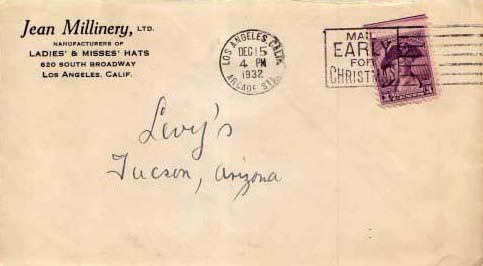 Jean Millinery, LTD.
MANUFACTURERS OF
LADIES' & MISSES' HATS
820 SOUTH BROADWAY
LOS ANGELES, CALIF.
LOS ANGELES, CALIF.
DEC 15
4 PM
1932
ARCADE STA.
MAIL
EARLY
FOR
CHRISTMAS
3 3
Levy's
Tucson, Arizona